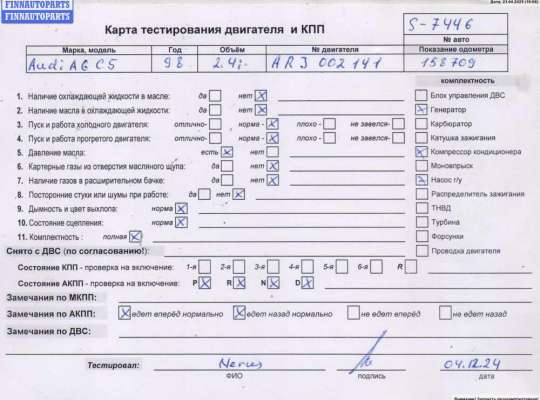 FINNAUTOPARTS
FINNAUTOPARTS
Карта тестирования двигателя и КПП
S-7446
№ авто
Марка, модель Год Объём № двигателя Показание одометра
Audi A6 C5 98 2.4i ARJ 002141 158709
комплектность
1. Наличие охлаждающей жидкости в масле: да нет X Блок управления ДВС
2. Наличие масла в охлаждающей жидкости: да нет X X Генератор
3. Пуск и работа холодного двигателя: отлично- норма - X плохо - не завелся- Карбюратор
4. Пуск и работа прогретого двигателя: отлично- норма - X плохо - не завелся- Катушка зажигания
5. Давление масла: есть X нет X Компрессор кондиционера
6. Картерные газы из отверстия масляного щупа: да нет X Моновпрыск
7. Наличие газов в расширительном бачке: да нет X X Насос г/у
8. Посторонние стуки или шумы при работе: да нет X Распределитель зажигания
9. Дымность и цвет выхлопа: норма X ТНВД
10. Состояние сцепления: норма X Турбина
11. Комплектность : полная X Форсунки
Снято с ДВС (по согласованию!): Проводка двигателя
Состояние КПП - проверка на включение: 1-я 2-я 3-я 4-я 5-я 6-я R
Состояние АКПП - проверка на включение: P X R X N X D X
Замечания по МКПП:
Замечания по АКПП: X едет вперёд нормально X едет назад нормально не едет вперёд не едет назад
Замечания по ДВС:
Тестировал: 04.12.24
ФИО подпись дата